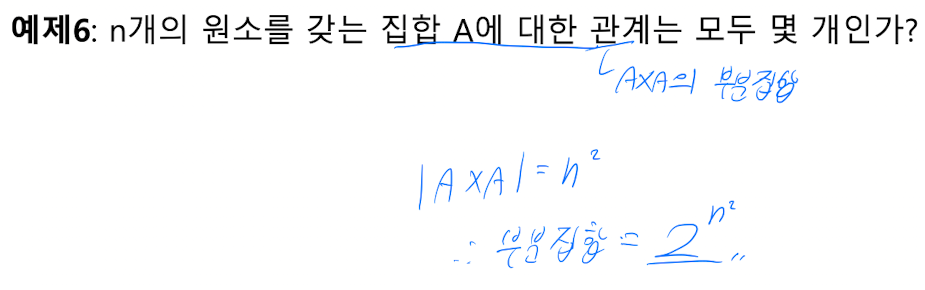 예제6: n개의 원소를 갖는 집합 A에 대한 관계는 모두 몇 개인가?
A×A의 부분집합
|A×A| = n²
∴ 부분집합 = 2^n²